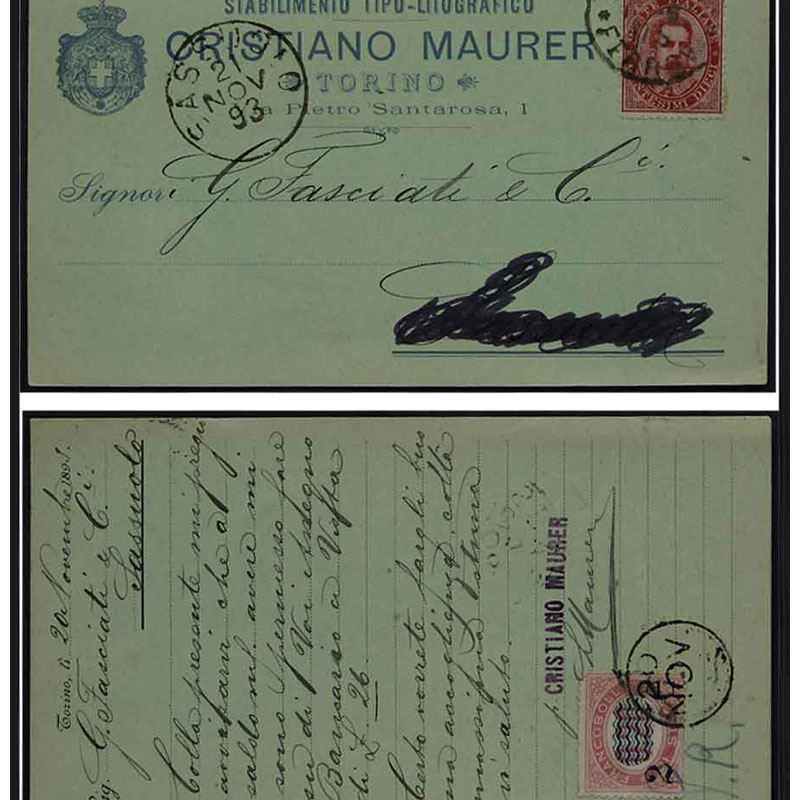 STABILIMENTO TIPO-LITOGRAFICO
CRISTIANO MAURER
TORINO
Via Pietro Santarosa, 1
SASSUOLO
21 NOV 93
CENTESIMI DIECI
Signori G. Fasciati & C.i
Torino, li 20 Novembre 189
Sig. G. Fasciati & C.i
Sassuolo
Colla presente mi pregio
avvisarvi che a
saldo ml. avere mi
sono permesso fare
su di Voi Assegno
Bancario a Vista
di L. 26.
Certo vorrete fargli buo
na accoglienza, colla
massima stima
vi saluto.
CRISTIANO MAURER
p. Maurer
FRANCOBOLLO
2
NOV
V.R.